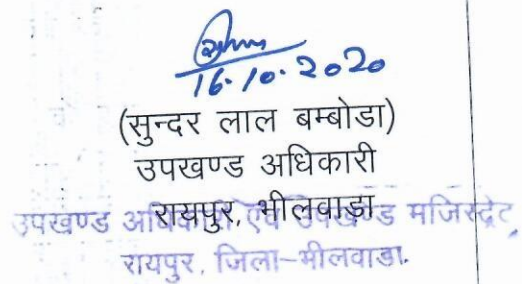 16.10.2020
(सुन्दर लाल बम्बोडा)
उपखण्ड अधिकारी
रायपुर, भीलवाडा
उपखण्ड अधिकारी एवं उपखण्ड मजिस्ट्रेट,
रायपुर, जिला-भीलवाडा.